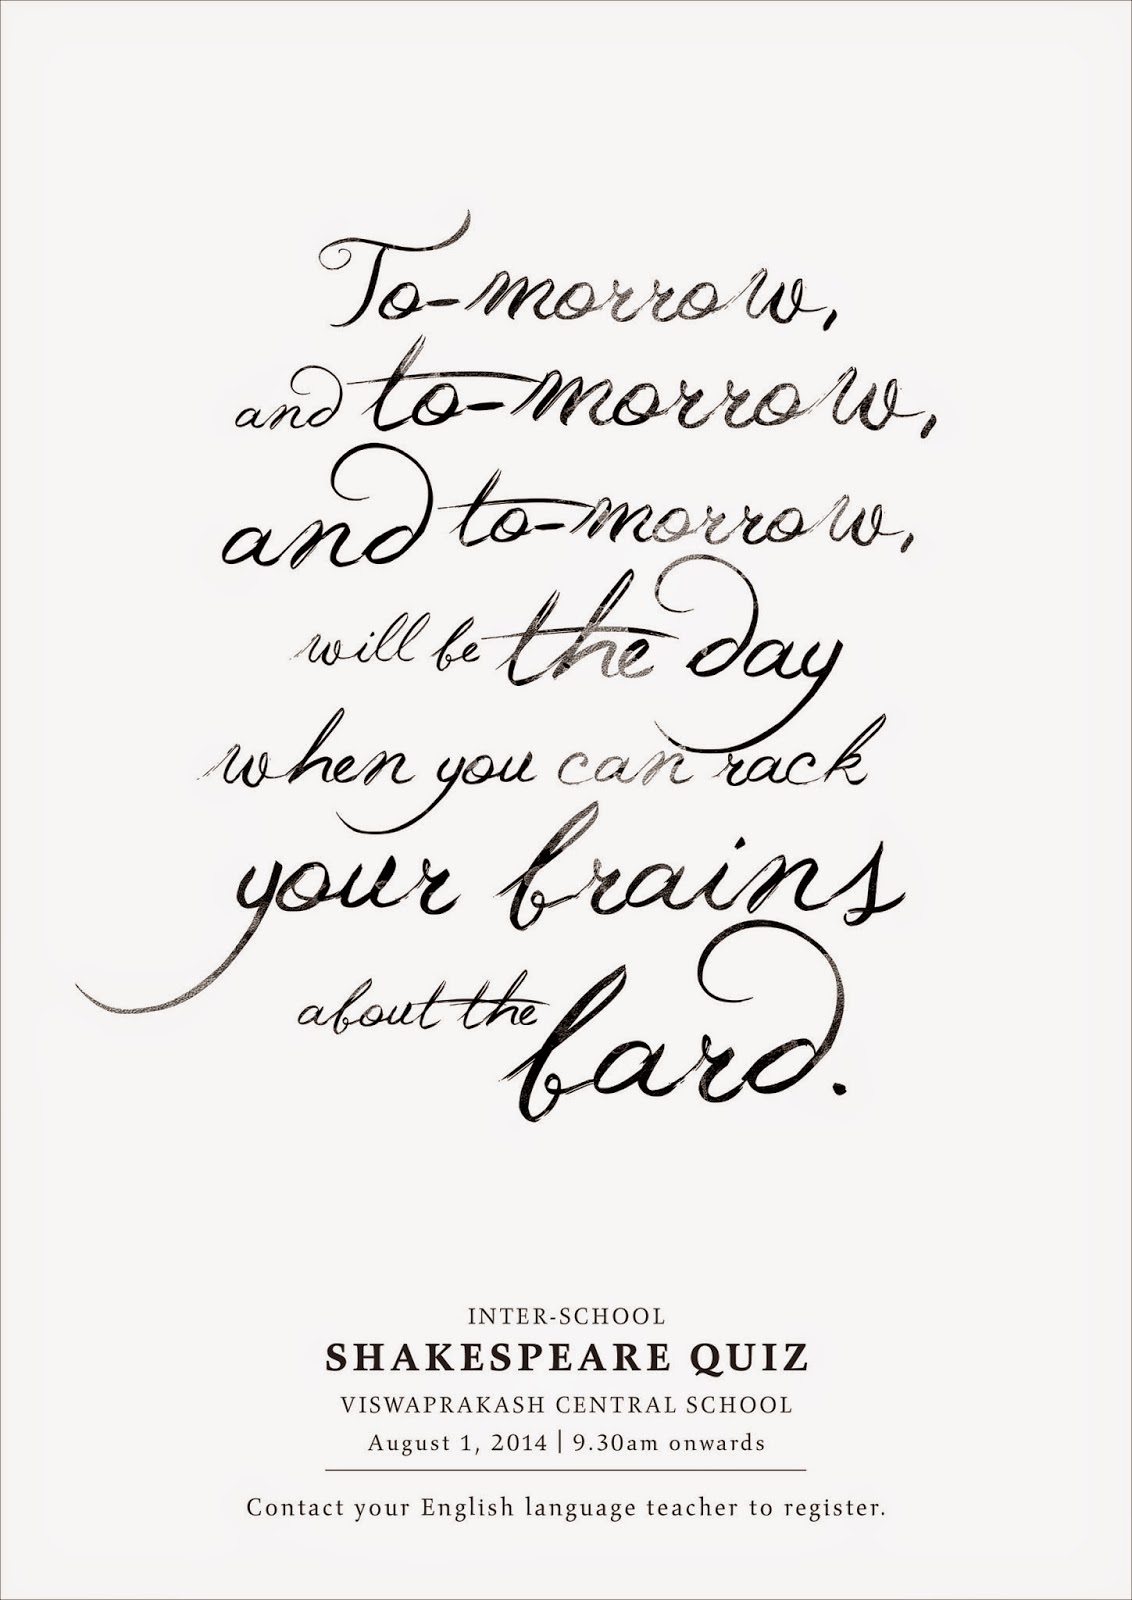 To-morrow,
and to-morrow,
and to-morrow,
will be the day
when you can rack
your brains
about the
bard.
INTER-SCHOOL
SHAKESPEARE QUIZ
VISWAPRAKASH CENTRAL SCHOOL
August 1, 2014 | 9.30am onwards
Contact your English language teacher to register.